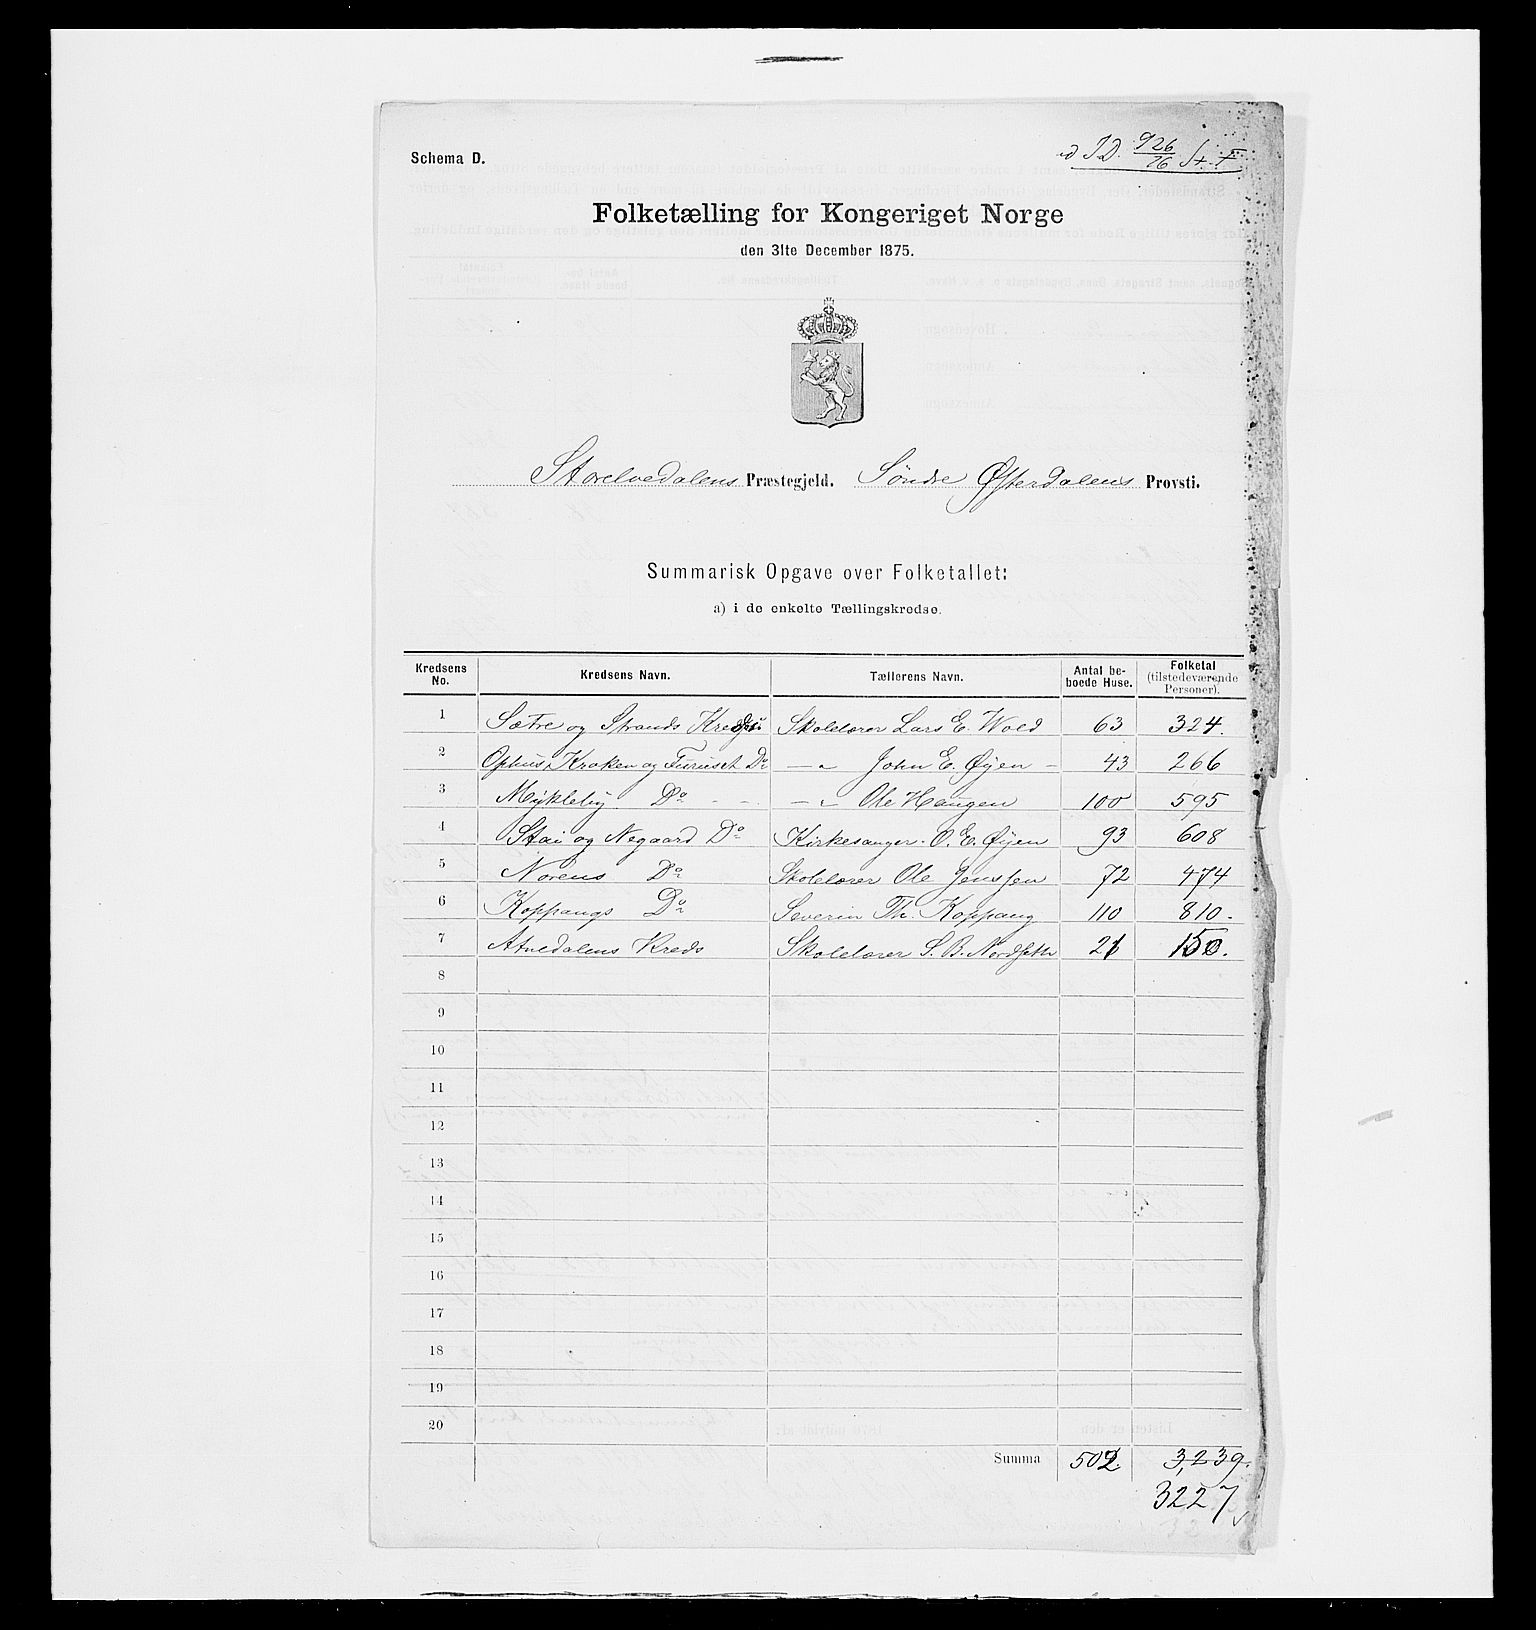 Schema D.
ad I D. 926/76 St. F
Folketælling for Kongeriget Norge
den 31te December 1875.
Storelvedalens Præstegjeld. Söndre Østerdalens Provsti.
Summarisk Opgave over Folketallet:
a) i de enkelte Tællingskredse.
Kredsens No. Kredsens Navn. Tællerens Navn. Antal beboede Huse. Folketal (tilstedeværende Personer).
1 Sætre og Strands Kreds Skolelærer Lars E. Wold 63 324.
2 Ophus, Kroken og Furuset Do — „ John E. Øyen – 43 266
3 Mykleby Do - - — „ Ole Haugen 100 595
4 Stai og Negaard Do Kirkesanger O. E. Øyen 93 608
5 Norens Do Skolelærer Ole Jenssen 72 474
6 Koppangs Do Severin Th. Koppang 110 810.
7 Atnedalens Kreds Skolelærer S. B. Nordseth 21 150.
8
9
10
11
12
13
14
15
16
17
18
19
20
Summa 502. 3,239.
3227